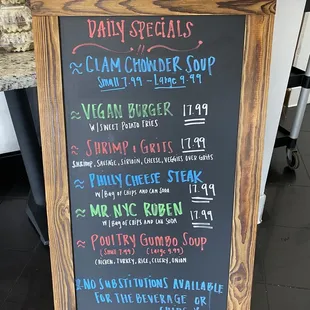 DAILY SPECIALS
≈ CLAM CHOWDER SOUP
Small 7.99 - Large 9.99
≈ VEGAN BURGER 17.99
W/ SWEET POTATO FRIES
≈ SHRIMP & GRITS 17.99
SHRIMP, SAUSAGE, SIRLOIN, CHEESE, VEGGIES OVER GRITS
≈ PHILLY CHEESE STEAK
W/ BAG OF CHIPS AND CAN SODA 17.99
≈ MR NYC RUBEN
W/ BAG OF CHIPS AND CAN SODA 17.99
≈ POULTRY GUMBO SOUP
(SMALL 7.99) (LARGE 9.99)
CHICKEN, TURKEY, RICE, CELERY, ONION
NO SUBSTITUTIONS AVAILABLE
FOR THE BEVERAGE OR